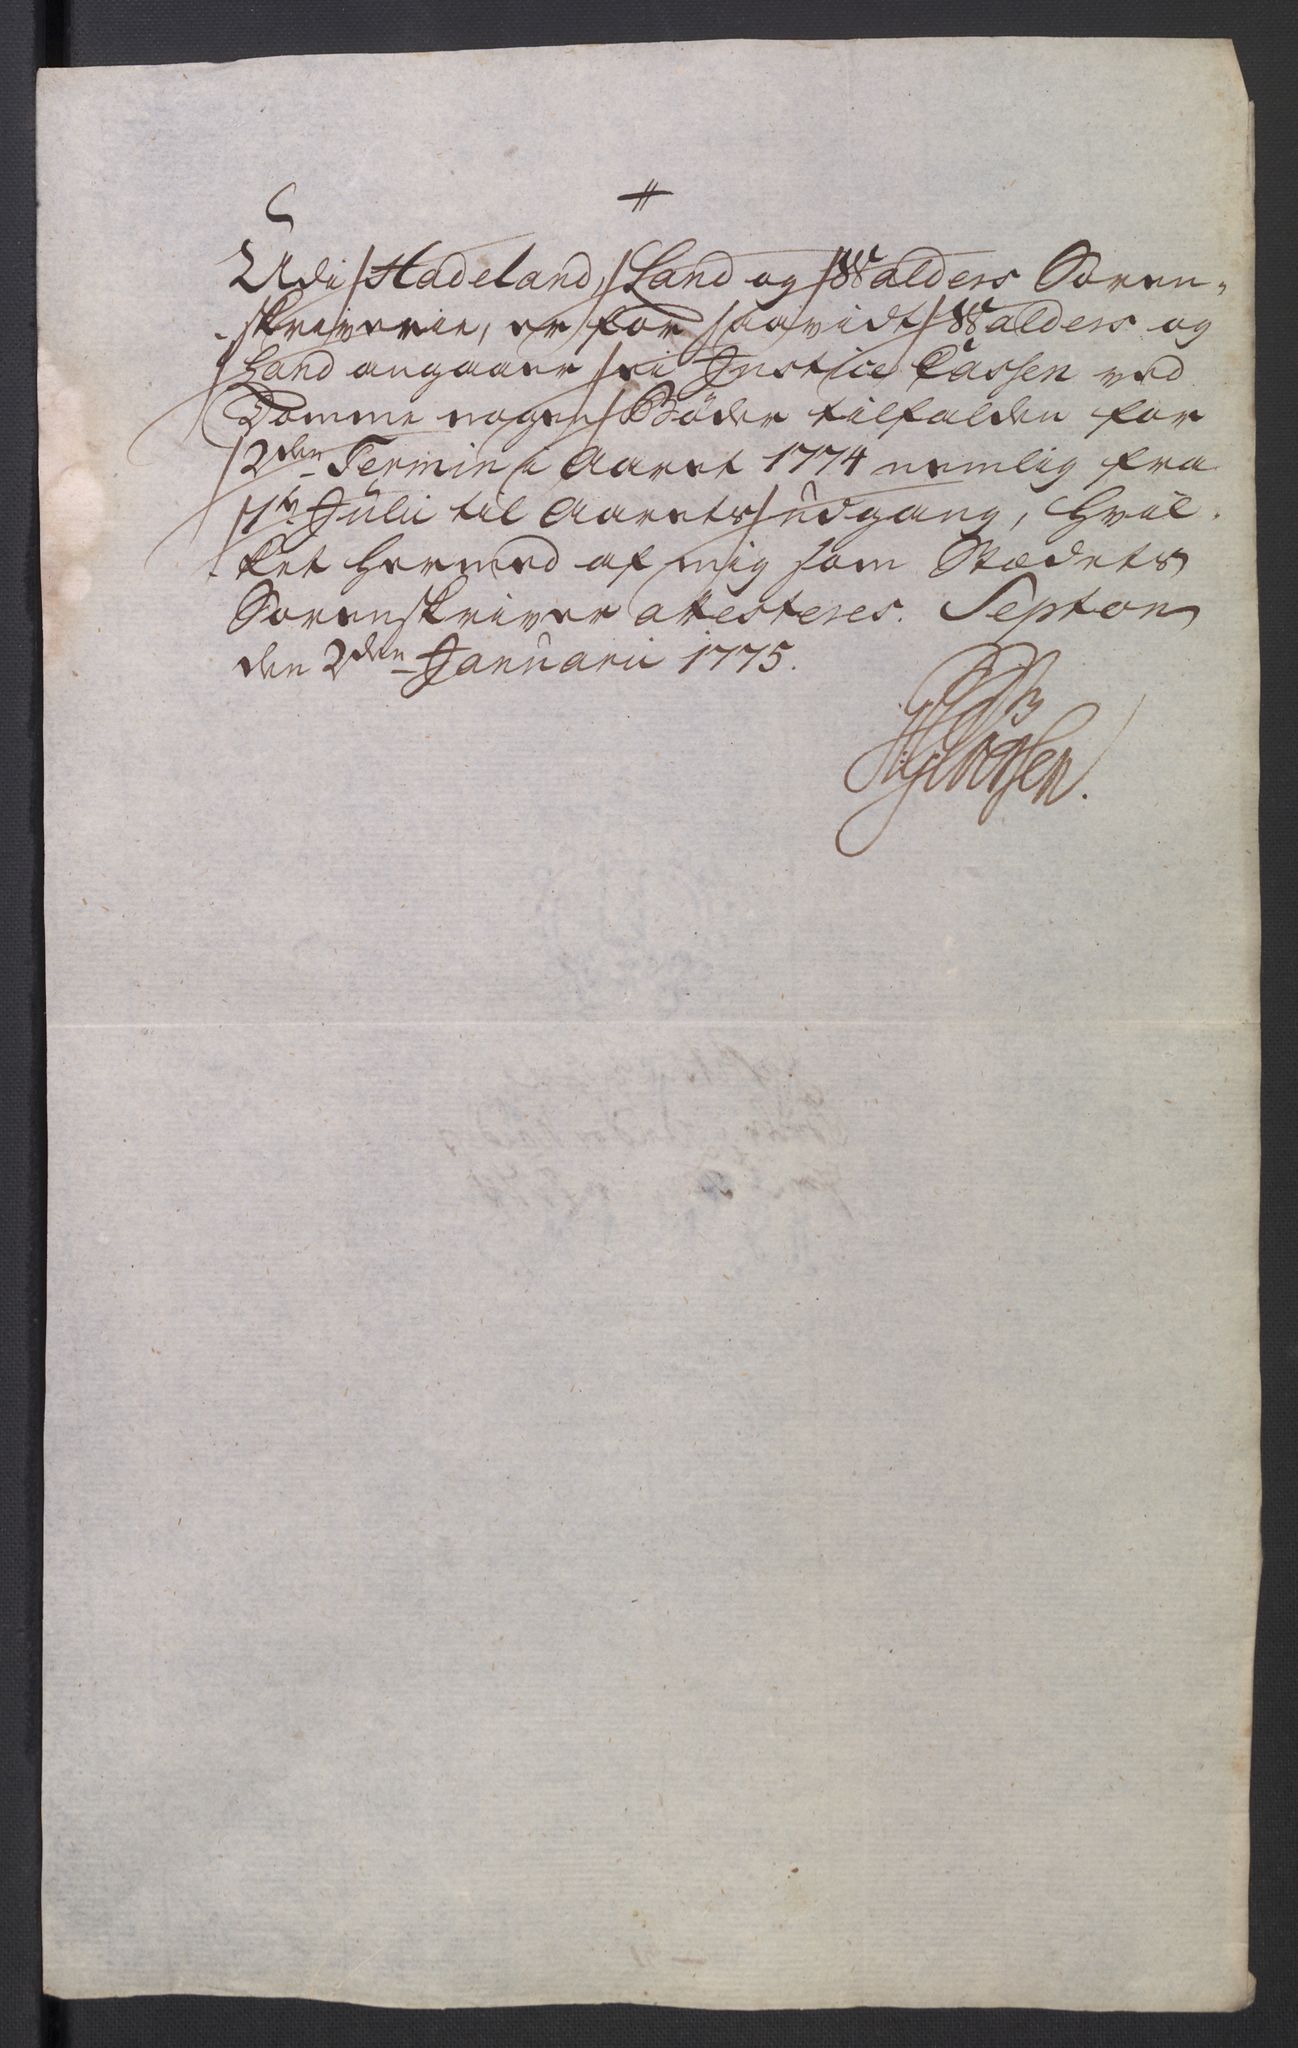 Udi Hadeland, Land og Walders Soren-
skriverie, er for saavidt Walders og
Land angaaer ei Justice Cassen ved
Domme nogen Böder tilfalden for
2den Termin i Aaret 1774 nemlig fra
1te Julii til Aarets udgang, Hvil-
ket hermed af mig som Stædets
Sorenskriver attesteres. Septon
den 2den Januarii 1775.